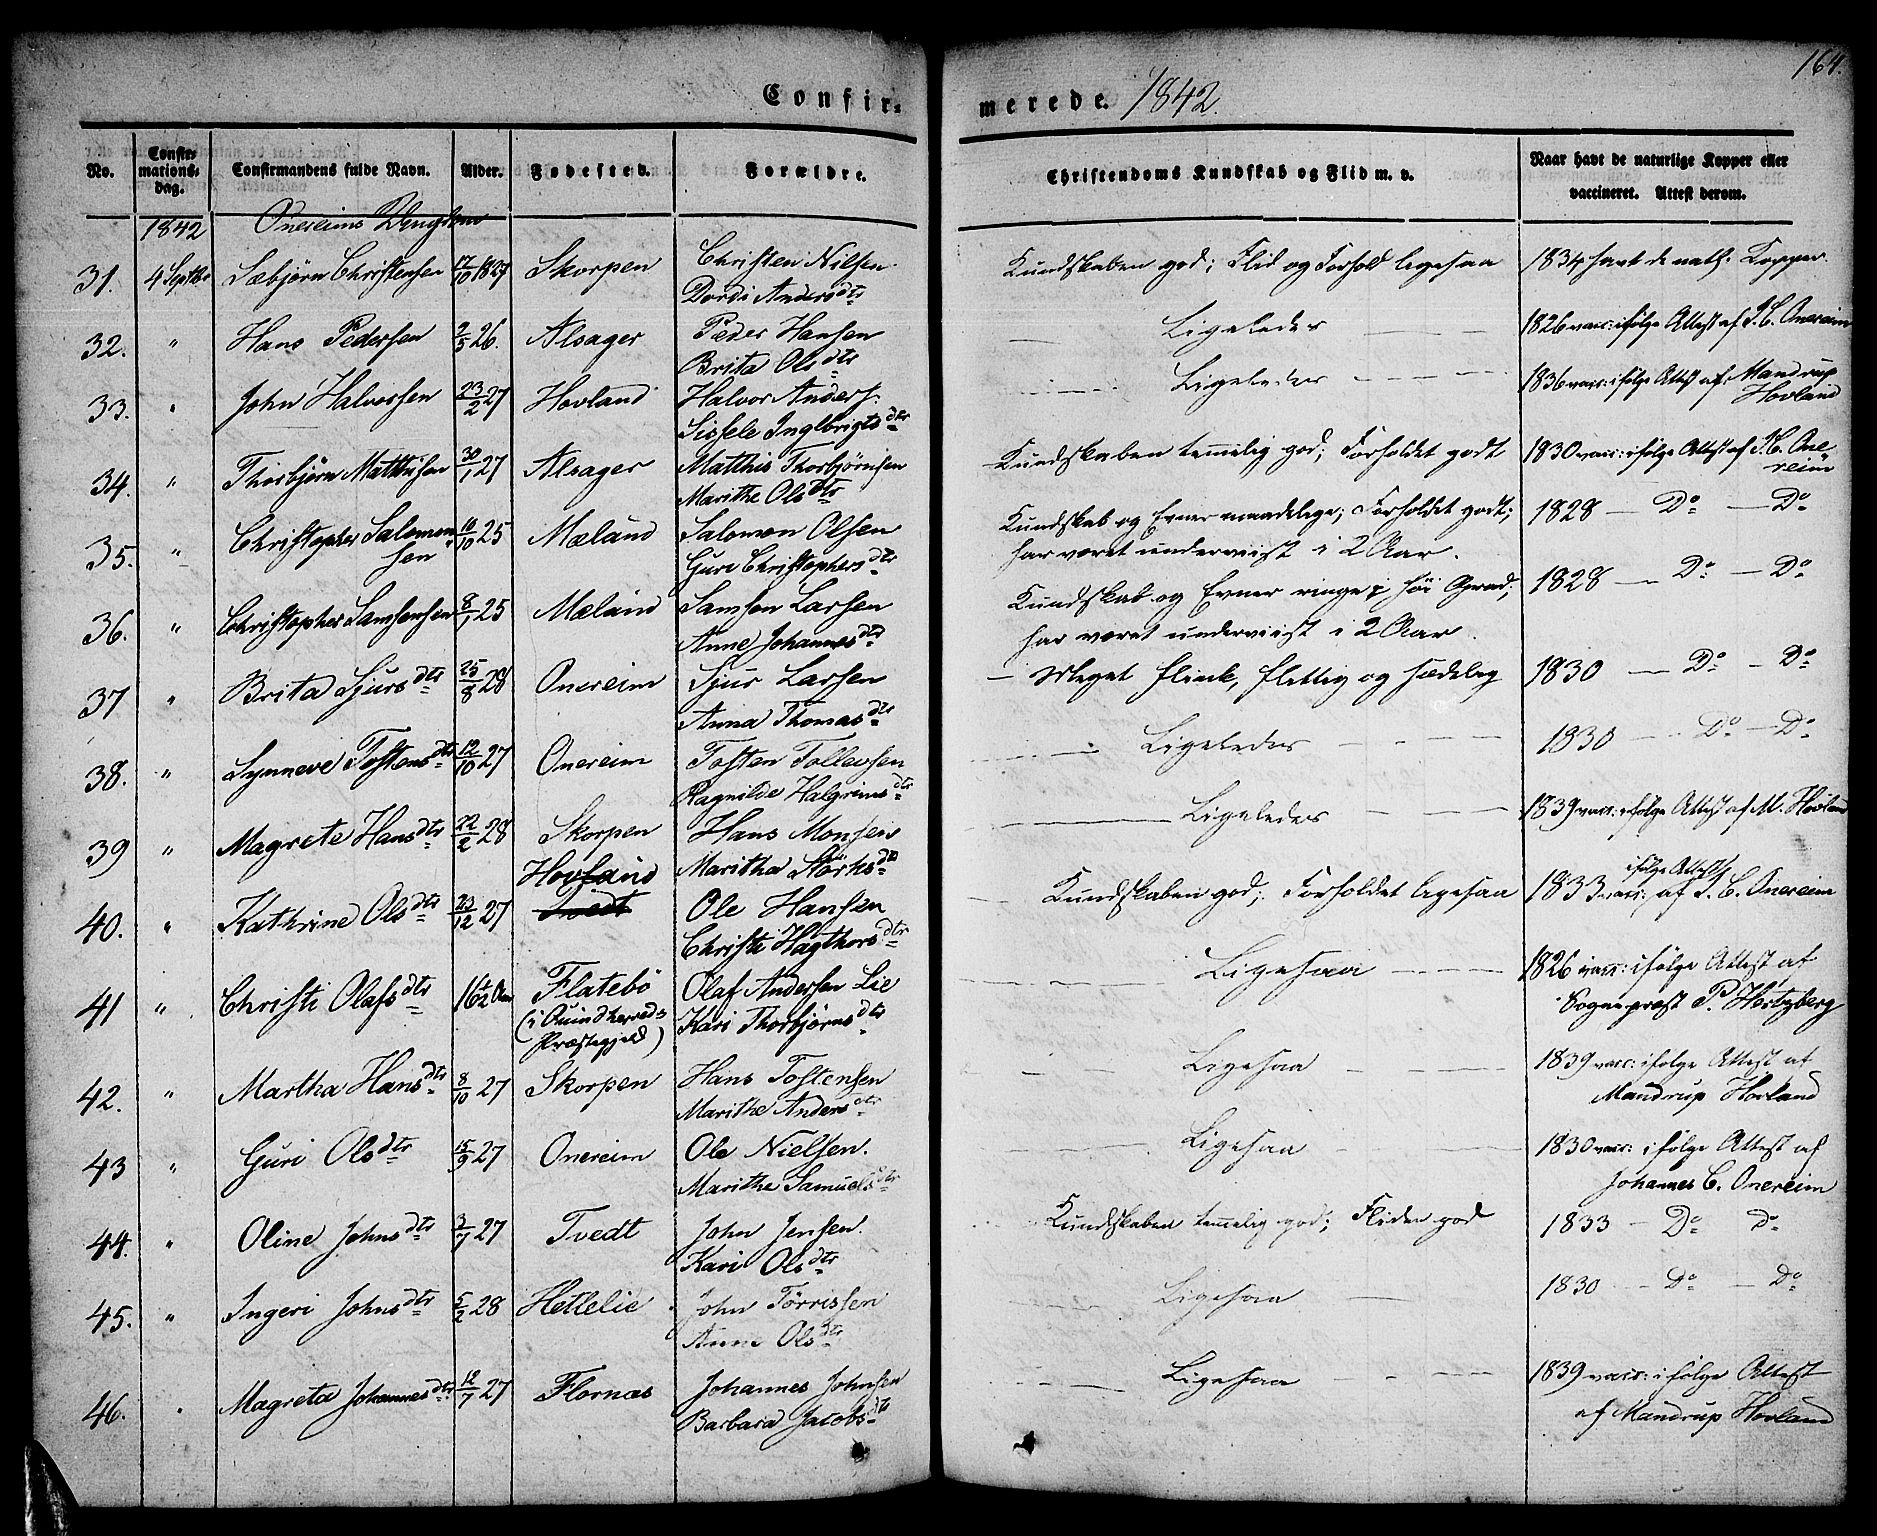 164.
Confir-
merede. 1842.
No.
Confir-
mations-
dag.
Confirmandens fulde Navn.
Alder.
Fødested.
Forældre.
Christendoms Kundskab og Flid m. v.
Naar havt de naturlige Kopper eller
vaccineret. Attest derom.
1842 Onereims
31. 4 Septbr Sæbjörn Christensen 17/10 1827 Skorpen Christen Nilsen Kundskaben god; Flid og Forhold ligesaa 1834 havt de nath. Kopper.
Dordi Andersdtr
32. " Hans Pedersen 2/5 26. Alsager Peder Hansen Ligeledes 1826 vacc: ifølge Attest af J. C. Onereim
Brita Olsdtr
33. " John Halvorsen 23/2 27 Hovland Halvor Anders. Ligeledes 1836 vacc: ifølge Attest af Mandrup
Hovland
Sissele Inglbrigtsdtr
34. " Thorbjörn Matthisen 30/1 27 Alsager Matthis Thorbjørnsen Kundskaben temmelig god; Forholdet godt 1830 vacc: ifølge Attest af J. C. One-
reim
Marithe Olsdtr
35. " Christopher Salomon- 10/10 25 Mæland Salomon Olsen Kundskab og Evner maadelige; Forholdet godt; 1828 — Do — Do
sen Guri Christophersdtr har været underviist i 2 Aar.
36. " Christopher Samsonsen 8/1 25 Mæland Samson Larsen Kundskab og Evner ringe i høi Grad; 1828 — Do — Do
Anne Johannesdtr har været underviist i 2 Aar.
37 " Brita Sjursdtr 25/8 28 Onereim Sjur Larsen Meget flink, flittig og sædelig 1830 — Do — Do
Anna Thomasdtr
38. " Synneve Tostensdtr 12/10 27 Onereim Tosten Tollevsen Ligeledes 1830 — Do — Do
Ragnilde Halgrimsdtr
39 " Magrete Hansdtr 22/2 28 Skorpen Hans Monsen Ligeledes 1839 vacc: ifølge Attest af M. Hovland
Maritha Störksdtr
Hovland
40. " Kathrine Olsdtr 23/12 27 Tvedt Ole Hansen Kundskaben god; Forholdet ligesaa 1833 vacc: ifølge Attest af J. C. Onereim
Christi Hagthorsdtr
41 " Christi Olafsdtr 16 1/2 Aar Flatebö Olaf Andersen Lie Ligesaa 1826 vacc: ifølge Attest af
(i Quindherreds Kari Thorbjørnsdtr Sognepræst P. Hertzberg
Præstegjeld)
42. " Martha Hansdtr 8/10 27 Skorpen Hans Tostensen Ligesaa 1839 vacc: ifølge Attest af
Marithe Andersdtr Mandrup Hovland
43 " Guri Olsdtr 15/9 27 Onereim Ole Nielsen. Ligesaa 1830 vacc: ifølge Attest af
Marithe Samuelsdtr Johannes C. Onereim
44. " Oline Johnsdtr 3/7 27 Tvedt John Jensen. Kundskaben temmelig god; Fliden god 1833 — Do do
Kari Olsdtr
45. " Ingeri Johnsdtr 5/2 28 Hetlelie John Törrissen Ligesaa 1830 — Do — Do
Anne Olsdtr
46. " Magreta Johannesdtr 12/7 27 Flornæs Johannes Johnsen Ligesaa 1839 vacc: ifølge Attest
Barbara Jacobsdtr af Mandrup Hovland